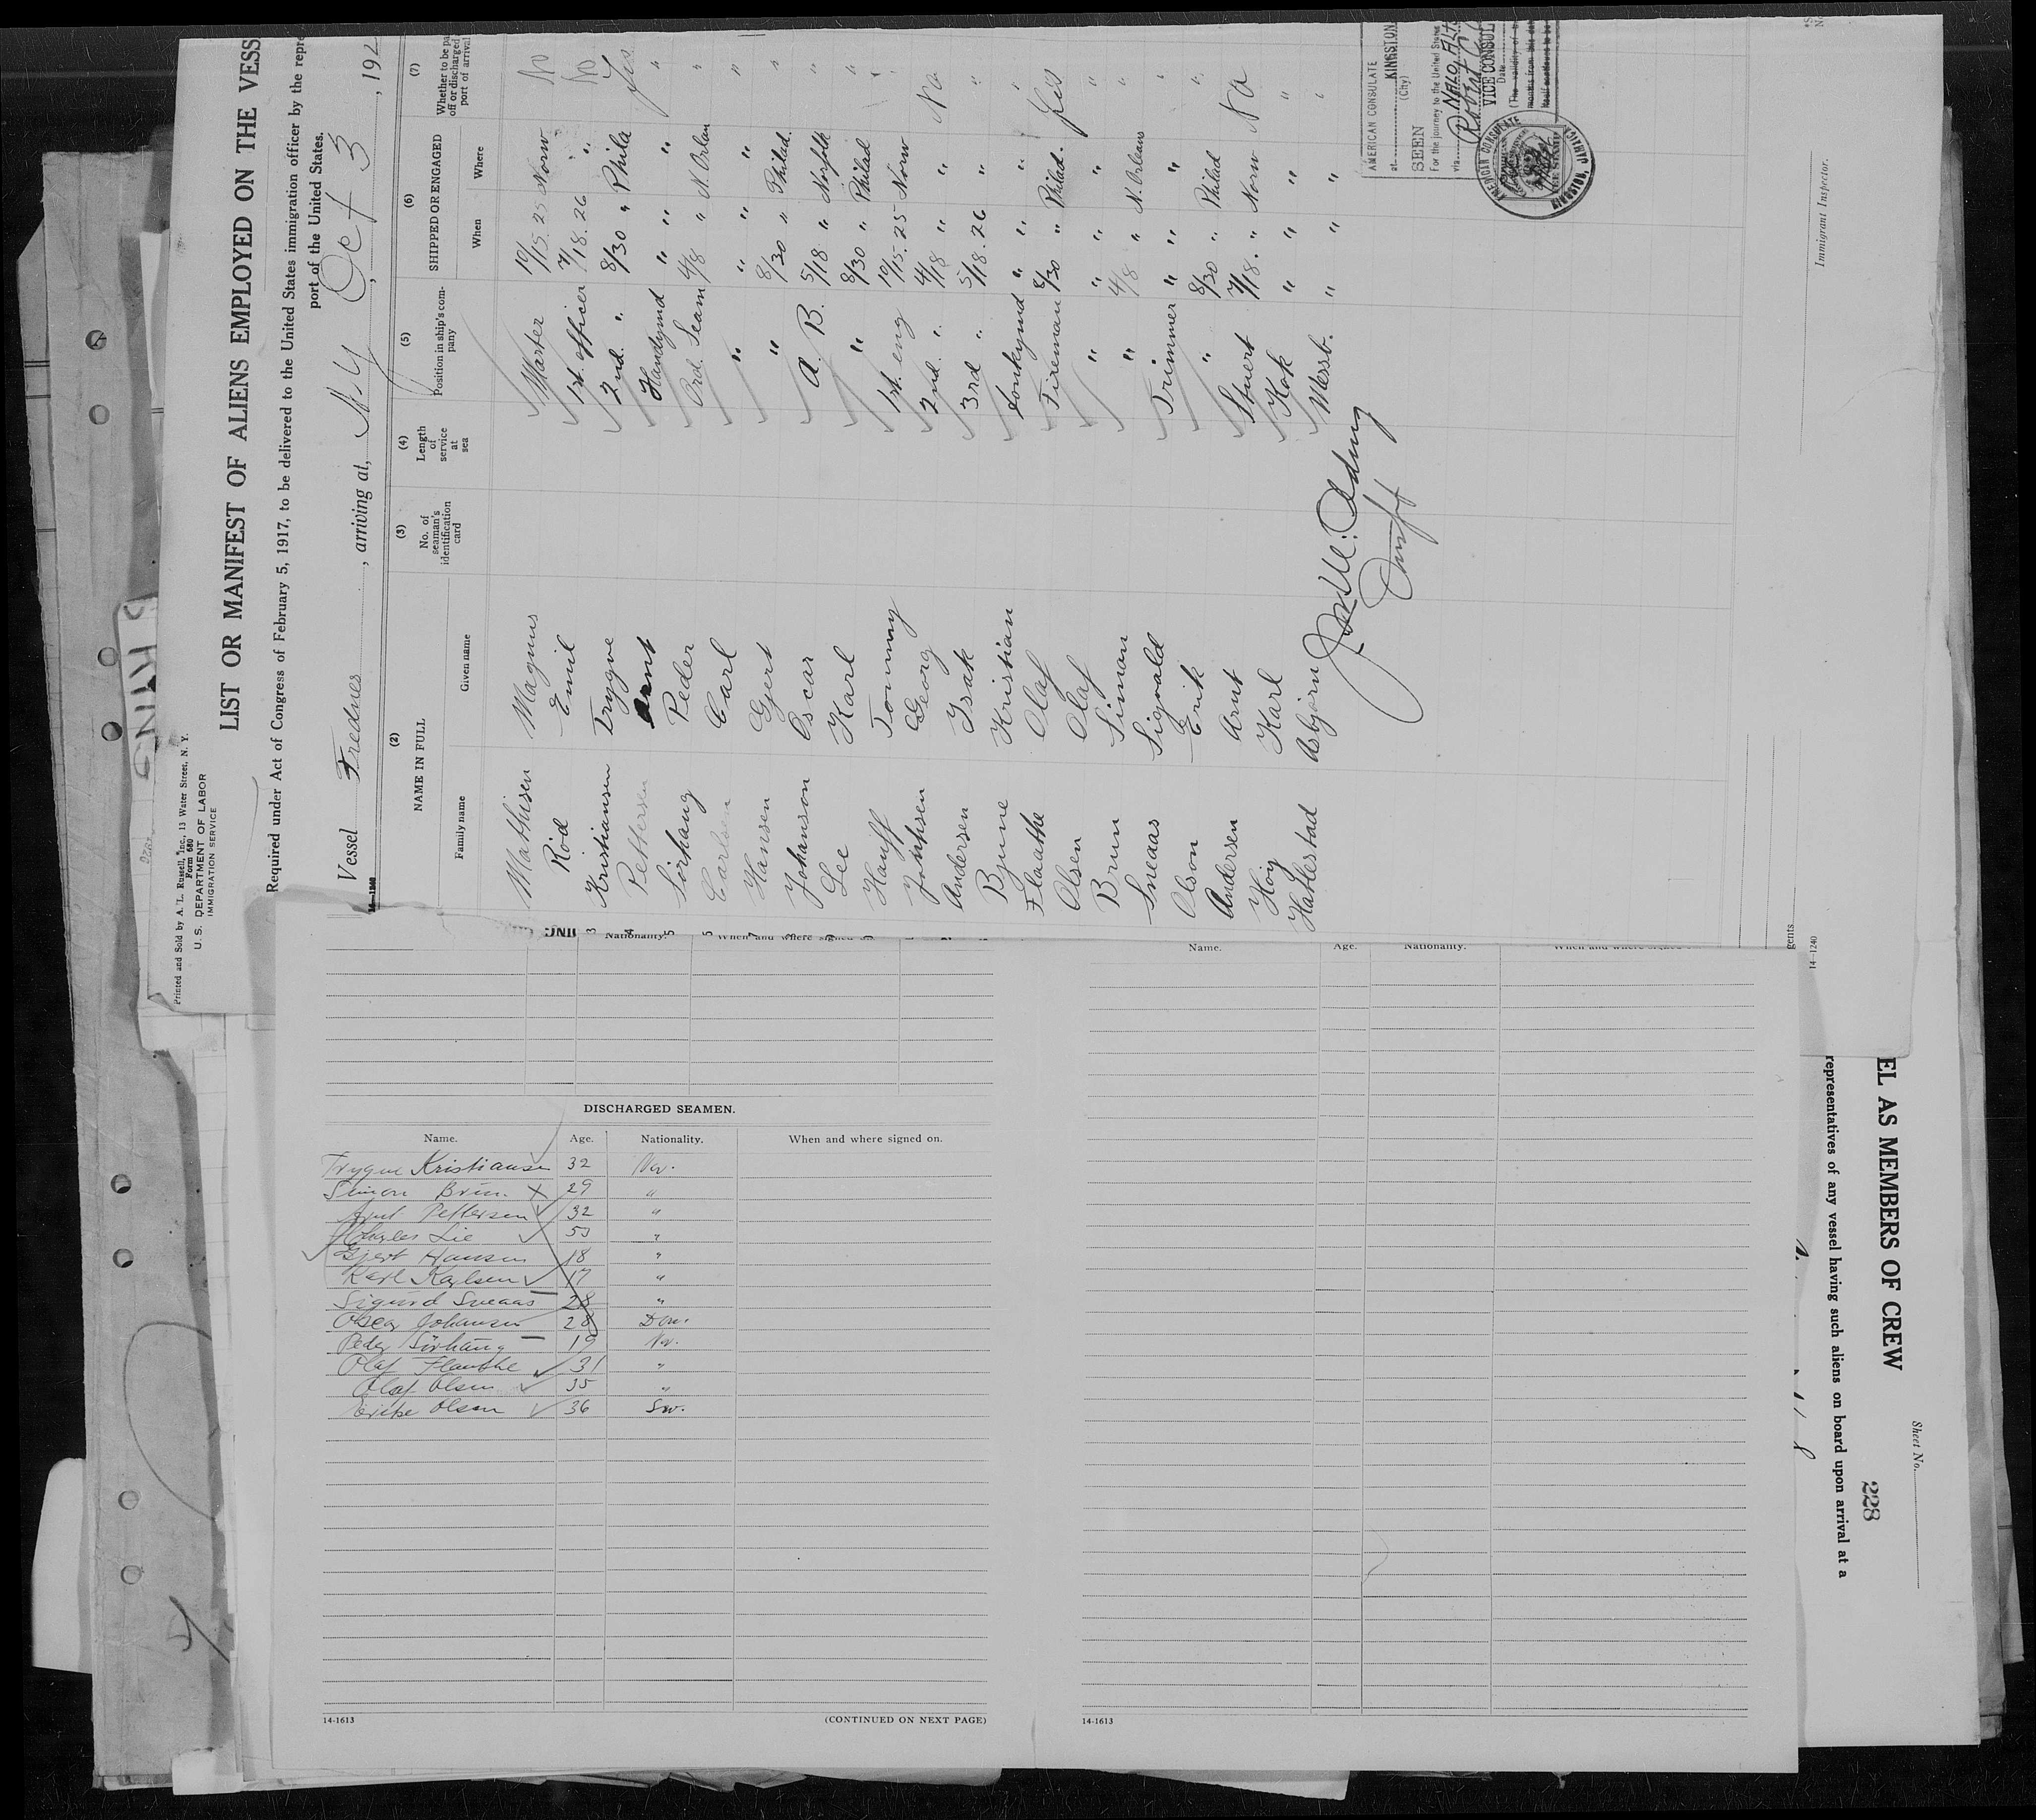 Printed and Sold by A. L. Russell, Inc., 13 Water Street, N. Y.
Form 680
U. S. DEPARTMENT OF LABOR
IMMIGRATION SERVICE
LIST OR MANIFEST OF ALIENS EMPLOYED ON THE VESS
Required under Act of Congress of February 5, 1917, to be delivered to the United States immigration officer by the repre
port of the United States.
Vessel Frednes, arriving at, N.Y, Oct 3, 192
14-1240
(2) (3) (4) (5) (6) (7)
NAME IN FULL No. of seaman's identification card Length of service at sea Position in ship's company SHIPPED OR ENGAGED Whether to be pa off or discharged port of arrival
Family name Given name When Where
Mathisen Magnus Master 10/15. 25 Norw No
Röd Emil 1st. officer 7/18. 26 " No
Kristiansen Trygve 2nd. " 8/30 " Phila Yes
Pettersen Arnt Handymd " " " "
Sörhaug Peder Ord. Seam 4/8 " N. Orlan "
Carlsen Carl " " " " "
Hansen Gjert " 8/30 " Philad. "
Johanson Oscar A. B. 5/18 " Norfolk "
Lee Karl " 8/30 " Philad "
Hauff Tommy 1st. eng 10/15. 25 Norw
Johnsen Georg 2nd. " 4/18 " " No
Andersen Isak 3rd " 5/18. 26 " "
Bjune Kristian donkymd " " " "
Flaathe Olaf Fireman 8/30 " Philad. Yes
Olsen Olaf " " " " "
Brun Simon " 4/8 " N. Orleans "
Sneaas Sigvald Trimmer " " " "
Olson Erik " 8/30 " Philad "
Andersen Arnt Stuert 7/18. " Norw No
Höy Karl Kok " " " "
Hatlestad Abjørn Messb. " " "
AMERICAN CONSULATE
at KINGSTON
(City)
SEEN
For the journey to the United States
via
VICE CONSUL
Date
(The validity of
months from this date
AMERICAN CONSULATE
KINGSTON, JAMAICA
Immigrant Inspector.
14-1240
gents
Nationality. When and where signed
Name. Age. Nationality. When and where signed
DISCHARGED SEAMEN.
Name. Age. Nationality. When and where signed on.
Trygve Kristiansen 32 Nor.
Simon Brun. 29 "
Arnt Pettersen 32 "
Charles Lie 53 "
Gjert Hansen 18 "
Karl Karlsen 17 "
Sigurd Sneaas 28 "
Oscar Johansen 28 Den.
Peder Sörhaug 19 Nor.
Olaf Flaathe 31 "
Olaf Olsen 35 "
Olsen 36 Sw.
14-1613
(CONTINUED ON NEXT PAGE)
14-1613
EL AS MEMBERS OF CREW
representatives of any vessel having such aliens on board upon arrival at a
Sheet No.
228